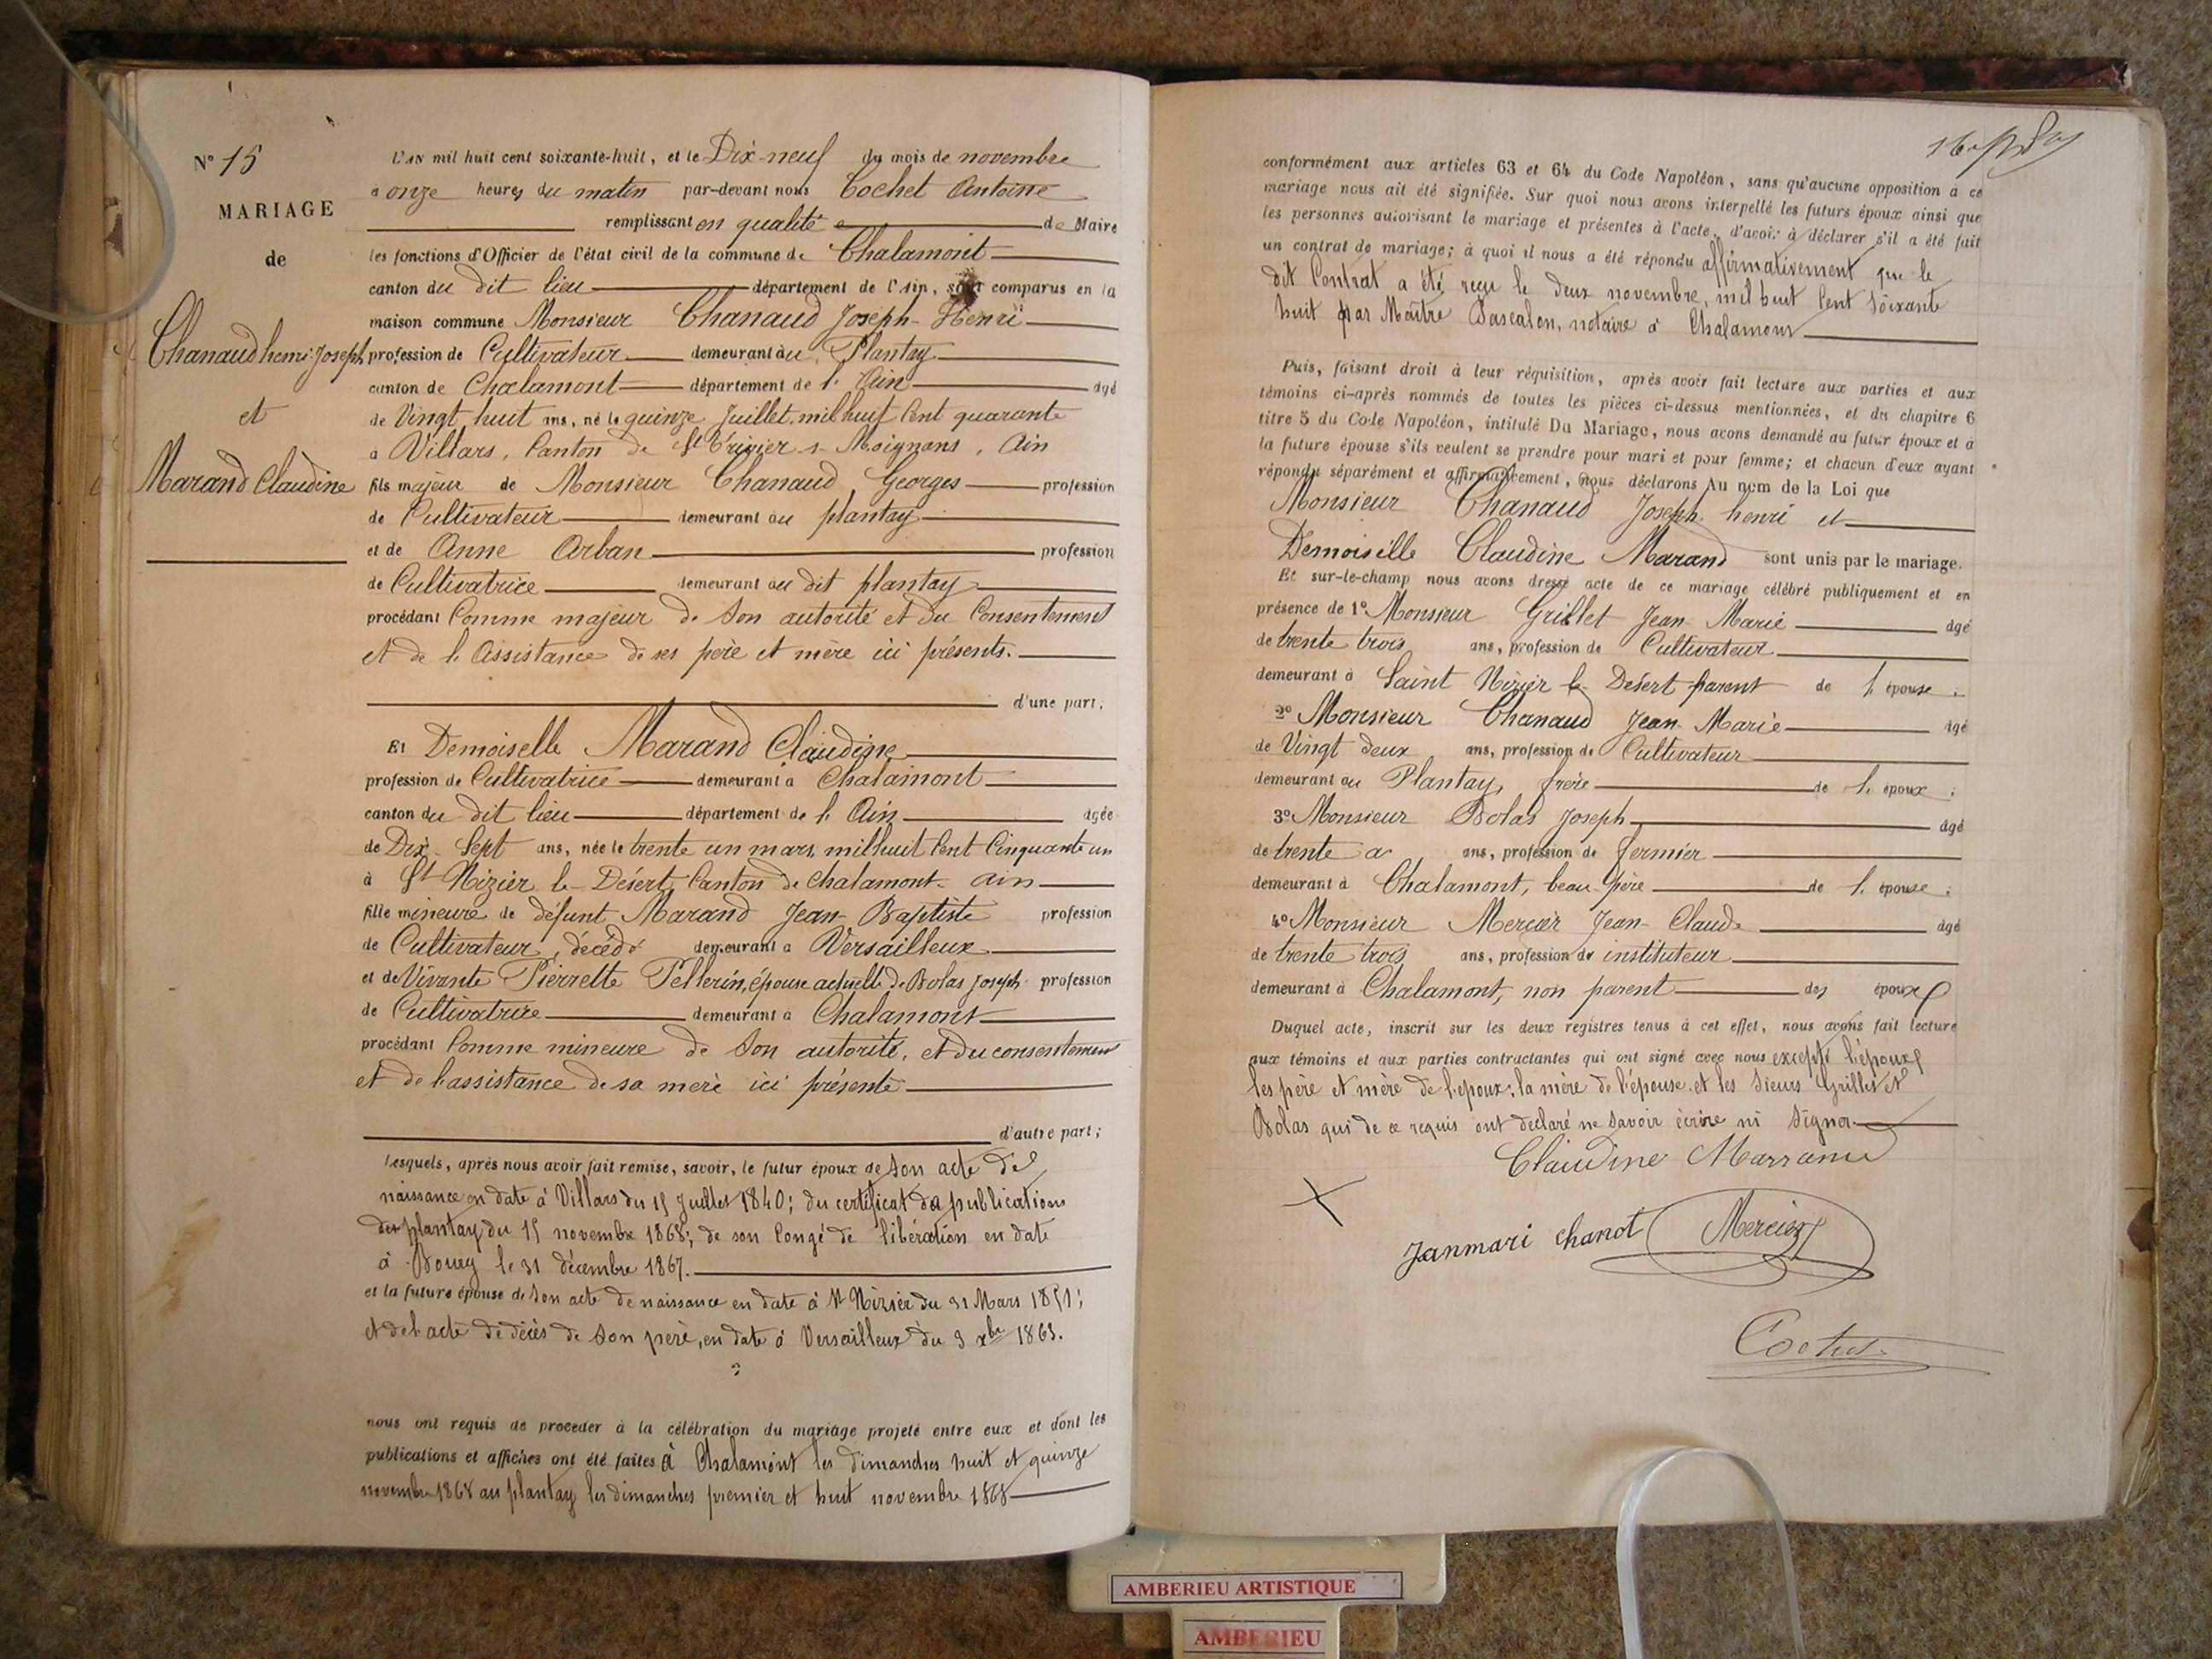 N° 15
MARIAGE
de
Chanaud henri-Joseph
et
Marand Claudine
L'AN mil huit cent soixante-huit, et le Dix-neuf du mois de novembre
a onze heures du matin par-devant nous Cochet Antoine
remplissant en qualité de Maire
les fonctions d'Officier de l'état civil de la commune de Chalamont
canton du dit lieu département de l'Ain, sont comparus en la
maison commune Monsieur Chanaud Joseph-Henri
profession de Cultivateur demeurant au Plantay
canton de Chalamont département de l'Ain âgé
de Vingt huit ans, né le quinze Juillet mil huit Cent quarante
à Villars, Canton de St Trivier s- Moignans, Ain
fils majeur de Monsieur Chanaud Georges profession
de Cultivateur demeurant au plantay
et de Anne Arban profession
de Cultivatrice demeurant au dit plantay
procédant Comme majeur de Son autorité et du Consentement
et de l'Assistance de ses père et mère ici présents.
d'une part,
Et Demoiselle Marand Claudine
profession de Cultivatrice demeurant à Chalamont
canton du dit lieu département de l'Ain âgée
de Dix-Sept ans, née le trente un mars mil huit Cent Cinquante un
à St Nizier le-Désert, Canton de Chalamont- ain
fille mineure de défunt Marand Jean-Baptiste profession
de Cultivateur, décédé demeurant a Versailleux
et de Vivante Pierrette Pellerin, épouse actuelle de Bolas Joseph profession
de Cultivatrice demeurant à Chalamont
procédant Comme mineure de Son autorité, et du consentement
et de l'assistance de sa mère ici présente
d'autre part;
Lesquels, après nous avoir fait remise, savoir, le futur époux de Son acte de
naissance en date à Villars du 15 Juillet 1840; du certificat de publications
du plantay du 15 novembre 1868; de son Congé de libération en date
à Bourg le 31 décembre 1867.
et la future épouse de Son acte de naissance en date à St Nizier du 31 Mars 1851;
et de l'acte de décès de Son père, en date à Versailleux du 3 xbre 1863.
nous ont requis de proceder à la célébration du mariage projeté entre eux et dont les
publications et affiches ont été faites à Chalamont les dimanches huit et quinze
novembre 1868 au plantay les dimanches premier et huit novembre 1868
conformément aux articles 63 et 64 du Code Napoléon, sans qu'aucune opposition à ce
mariage nous ait été signifiée. Sur quoi nous avons interpellé les futurs époux ainsi que
les personnes autorisant le mariage et présentes à l'acte, d'avoir à déclarer s'il a été fait
un contrat de mariage; à quoi il nous a été répondu affirmativement que le
dit Contrat a été reçu le deux novembre, mil huit Cent Soixante
huit par Maître Bascalon, notaire à Chalamont
Puis, faisant droit à leur réquisition, après avoir fait lecture aux parties et aux
témoins ci-après nommés de toutes les pièces ci-dessus mentionnées, et du chapitre 6
titre 5 du Code Napoléon, intitulé Du Mariage, nous avons demandé au futur époux et à
la future épouse s'ils veulent se prendre pour mari et pour femme; et chacun d'eux ayant
répondu séparément et affirmativement, nous déclarons Au nom de la Loi que
Monsieur Chanaud Joseph henri et
Demoiselle Claudine Marand sont unis par le mariage.
Et sur-le-champ nous avons dressé acte de ce mariage célébré publiquement et en
présence de 1° Monsieur Grillet Jean-Marie âgé
de trente trois ans, profession de Cultivateur
demeurant à Saint Nizier le Désert parent de l'épouse;
2° Monsieur Chanaud Jean-Marie âgé
de Vingt deux ans, profession de Cultivateur
demeurant au Plantay, frère de l'époux;
3° Monsieur Bolas Joseph âgé
de trente ans, profession de fermier
demeurant à Chalamont, beau-père de l'épouse;
4° Monsieur Mercier Jean-Claude âgé
de trente trois ans, profession de instituteur
demeurant à Chalamont, non parent des époux
Duquel acte, inscrit sur les deux registres tenus à cet effet, nous avons fait lecture
aux témoins et aux parties contractantes qui ont signé avec nous excepté l'époux
les père et mère de l'époux, la mère de l'épouse et les Sieurs Grillet et
Bolas qui de ce requis ont déclaré ne Savoir écrire ni Signer
Claudine Marrand
Janmari chanot Mercier
Cochet
AMBERIEU ARTISTIQUE
AMBERIEU